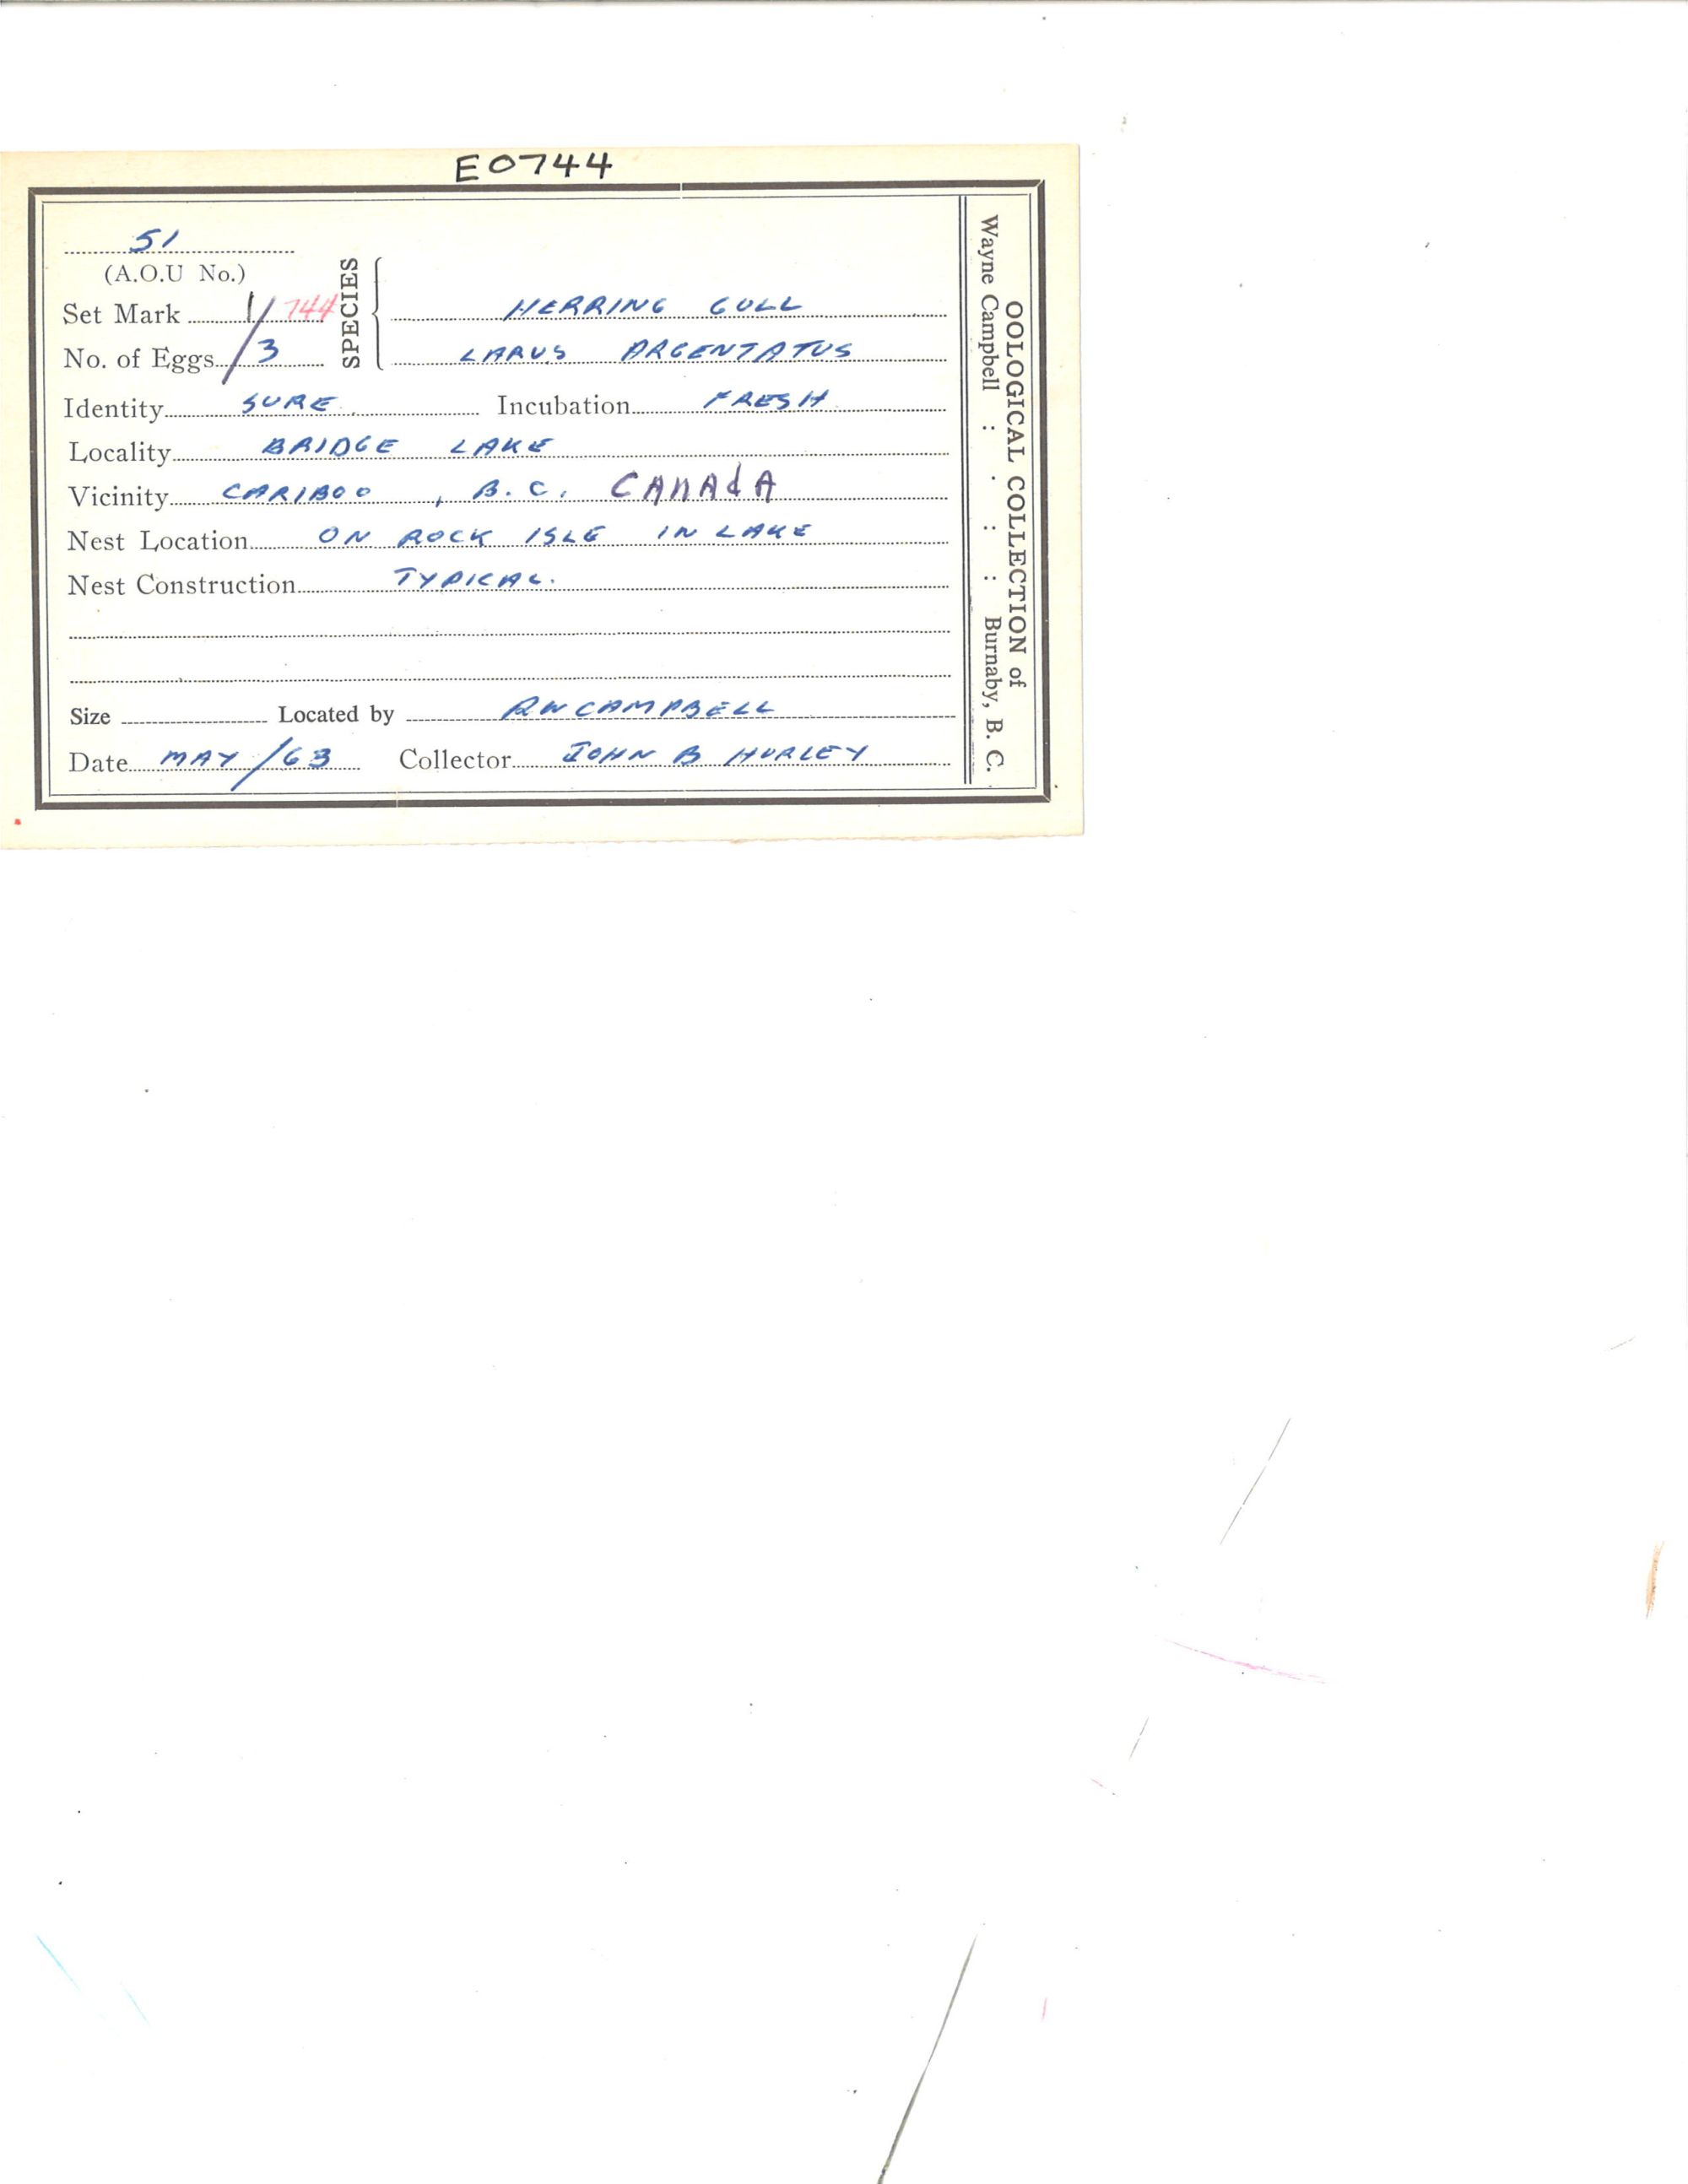 E0744
51
(A.O.U No.)
Set Mark 1/744
No. of Eggs 3
SPECIES
HERRING GULL
LARUS ARGENTATUS
Identity SURE Incubation FRESH
Locality BRIDGE LAKE
Vicinity CARIBOO, B.C. CANAdA
Nest Location ON ROCK ISLE IN LAKE
Nest Construction TYPICAL.
Size Located by RW CAMPBELL
Date MAY/63 Collector JOHN B HURLEY
OOLOGICAL COLLECTION of
Wayne Campbell : . : : Burnaby, B. C.